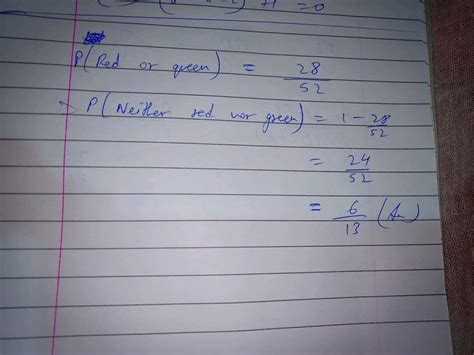 +1 = 0
P(Red or green) = 28/52
⇒ P(Neither red nor green) = 1 - 28/52
= 24/52
= 6/13 (Ans)